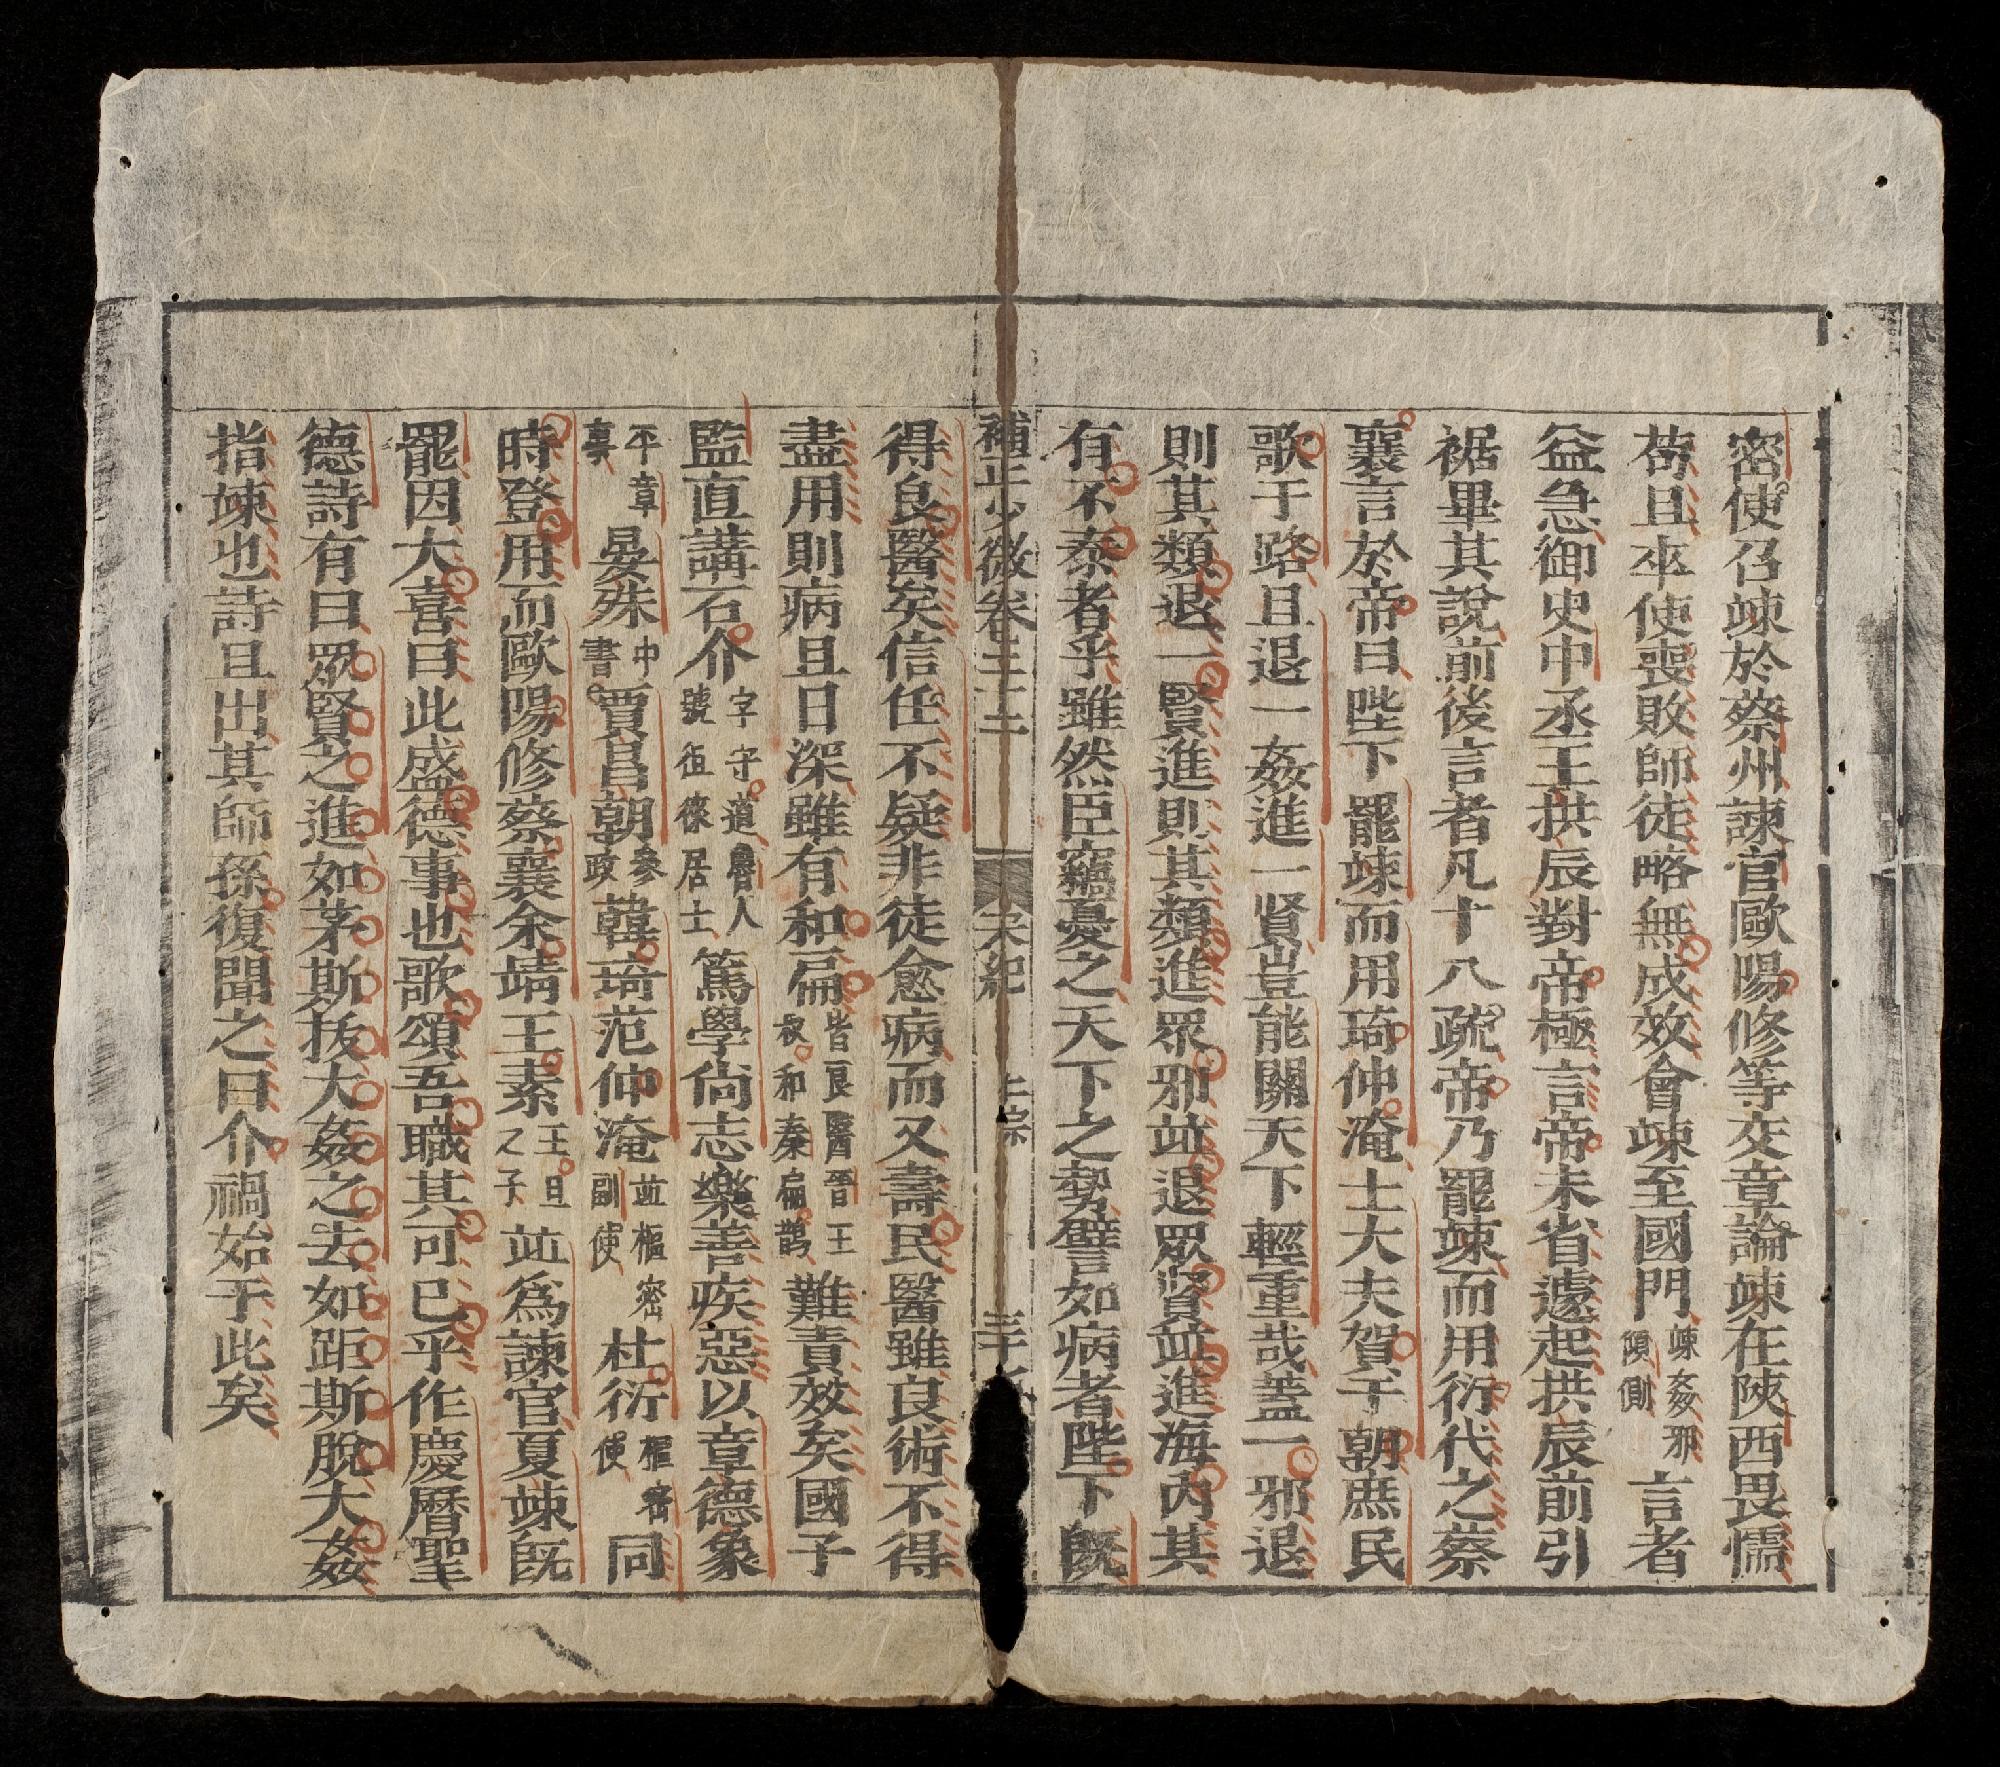 密使召竦於蔡州諫官歐陽修等交章論竦在陝西畏懦
苟且卒使喪敗師徒略無成效會竦至國門竦姦邪傾側言者
益急御史中丞王拱辰對帝極言帝未省遽起拱辰前引
裾畢其說前後言者凡十八疏帝乃罷竦而用衍代之蔡
襄言於帝曰陛下罷竦而用琦仲淹士大夫賀于朝庶民
歌于路且退一姦進一賢豈能關天下輕重哉蓋一邪退
則其類退一賢進則其類進眾邪竝退眾賢竝進海內其
有不泰者乎雖然臣竊憂之天下之勢譬如病者陛下既
補正少微卷三十二 宋紀 仁宗
得良醫矣信任不疑非徒愈病而又壽民醫雖良術不得
盡用則病且日深雖有和扁皆良醫晉王叔和秦扁鵲難責效矣國子
監直講石介字守道魯人號徂徠居士篤學尚志樂善疾惡以章德象
平章事晏殊中書賈昌朝參政韓琦范仲淹竝樞密副使杜衍樞密使同
時登用而歐陽修蔡襄余靖王素王旦之子竝爲諫官夏竦既
罷因大喜曰此盛德事也歌頌吾職其可已乎作慶曆聖
德詩有曰眾賢之進如茅斯拔大姦之去如距斯脫大姦
指竦也詩且出其師孫復聞之曰介禍始于此矣